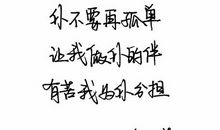 你不要再孤单
让我做你的伴
有苦我为你分担